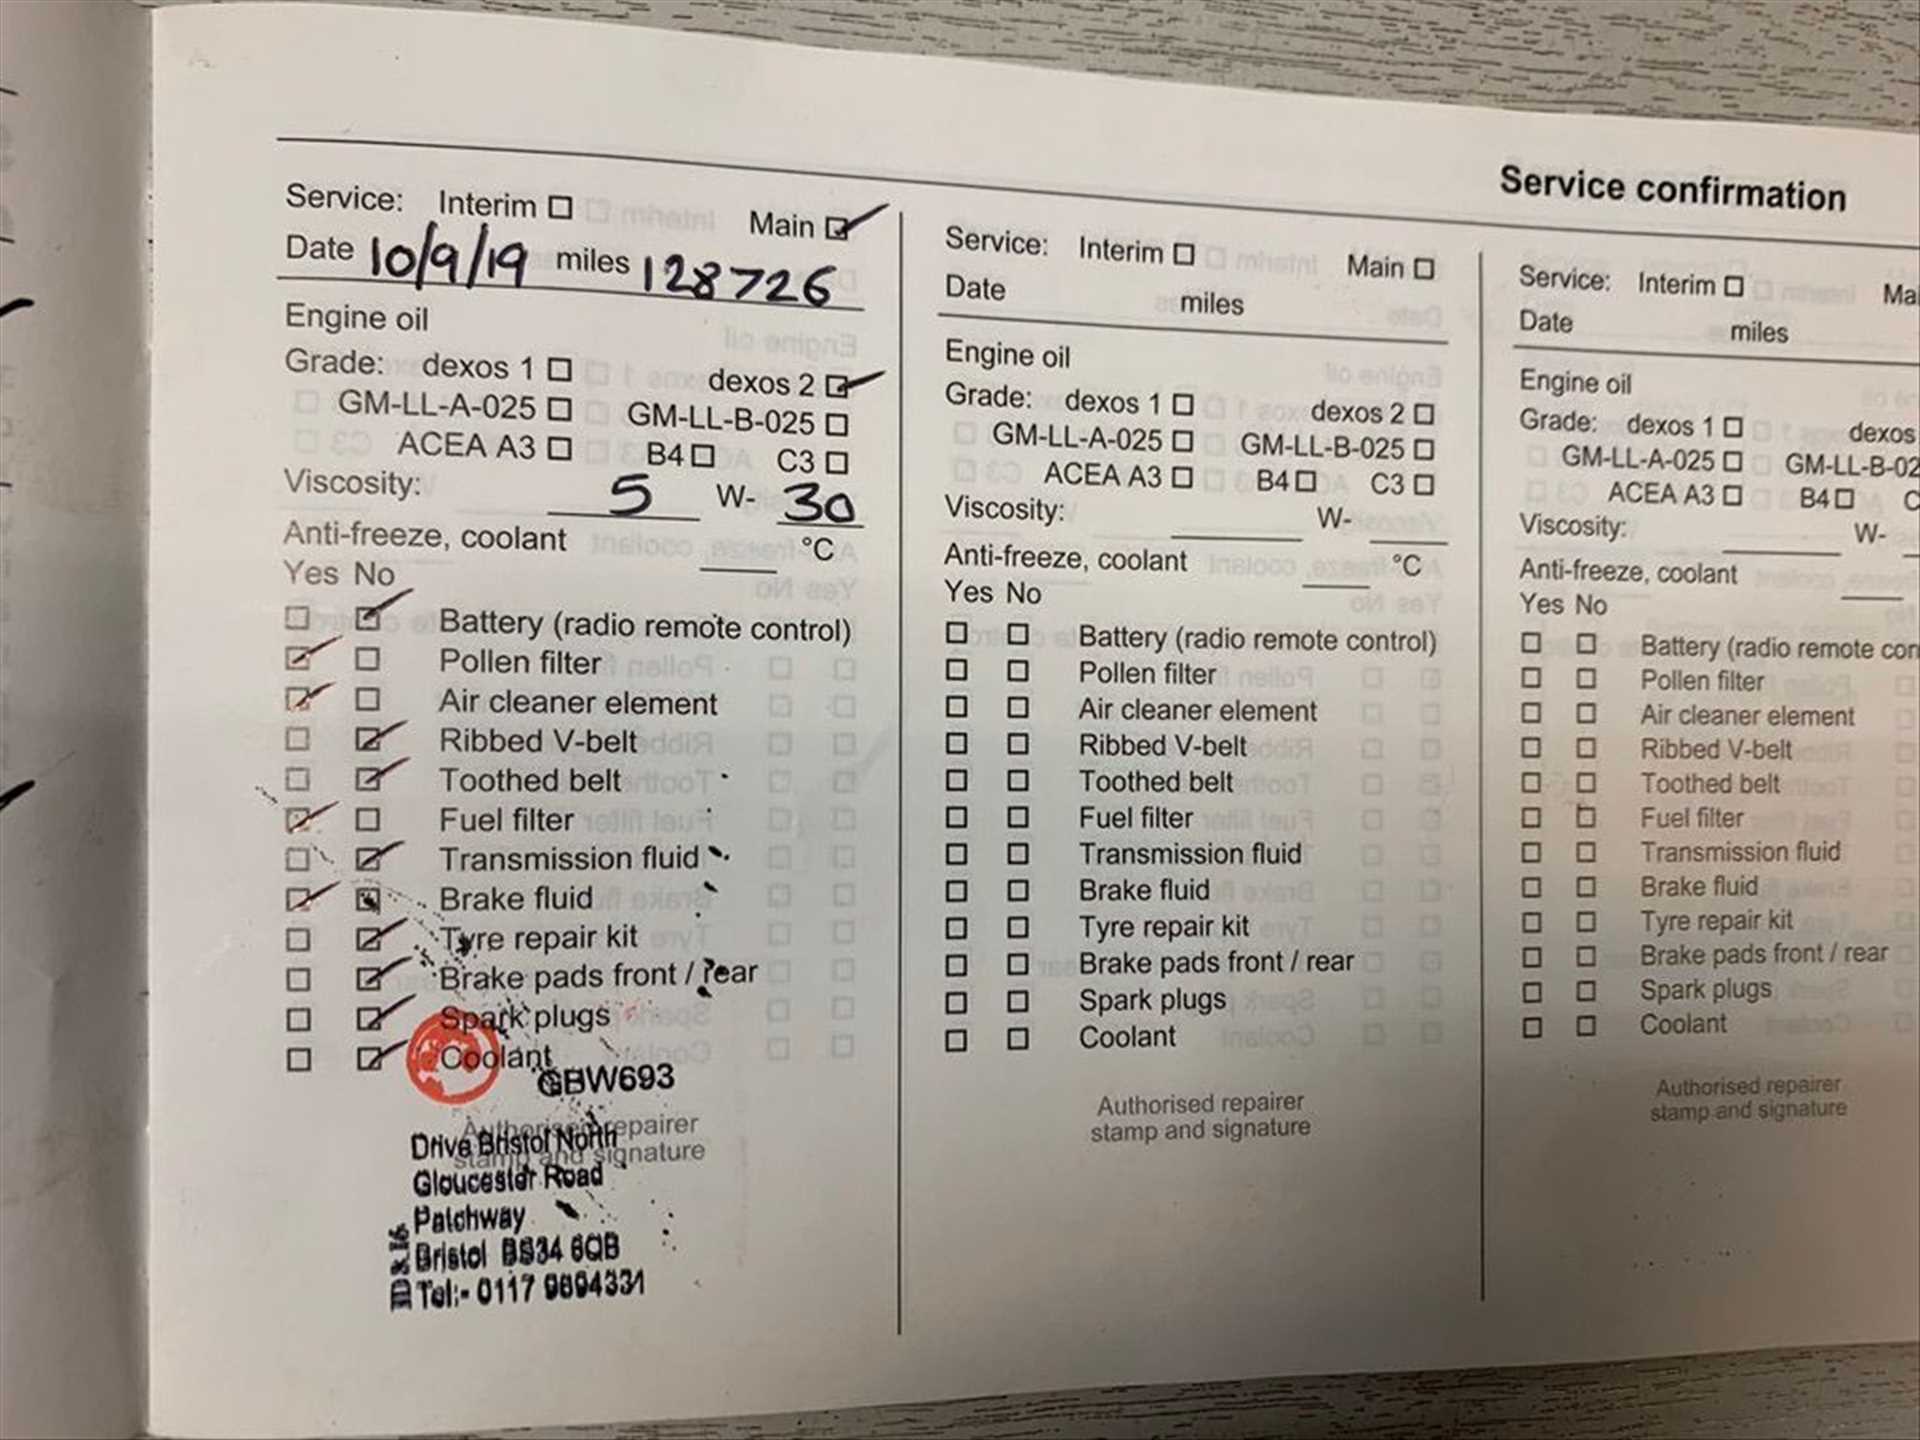 Service confirmation
Service: Interim ☐ Main ☑
Date 10/9/19 miles 128726
Engine oil
Grade: dexos 1 ☐ dexos 2 ☑
GM-LL-A-025 ☐ GM-LL-B-025 ☐
ACEA A3 ☐ B4 ☐ C3 ☐
Viscosity: 5 W- 30
Anti-freeze, coolant °C
Yes No
☐ ☑ Battery (radio remote control)
☑ ☐ Pollen filter
☑ ☐ Air cleaner element
☐ ☑ Ribbed V-belt
☐ ☑ Toothed belt
☑ ☐ Fuel filter
☐ ☑ Transmission fluid
☑ ☐ Brake fluid
☐ ☑ Tyre repair kit
☐ ☑ Brake pads front / rear
☐ ☑ Spark plugs
☐ ☑ Coolant
GBW693
Authorised repairer
stamp and signature
Drive Bristol North
Gloucester Road
Patchway
Bristol BS34 6QB
Tel:- 0117 9694331
Service: Interim ☐ Main ☐
Date miles
Engine oil
Grade: dexos 1 ☐ dexos 2 ☐
GM-LL-A-025 ☐ GM-LL-B-025 ☐
ACEA A3 ☐ B4 ☐ C3 ☐
Viscosity: W-
Anti-freeze, coolant °C
Yes No
☐ ☐ Battery (radio remote control)
☐ ☐ Pollen filter
☐ ☐ Air cleaner element
☐ ☐ Ribbed V-belt
☐ ☐ Toothed belt
☐ ☐ Fuel filter
☐ ☐ Transmission fluid
☐ ☐ Brake fluid
☐ ☐ Tyre repair kit
☐ ☐ Brake pads front / rear
☐ ☐ Spark plugs
☐ ☐ Coolant
Authorised repairer
stamp and signature
Service: Interim ☐ Mai
Date miles
Engine oil
Grade: dexos 1 ☐ dexos
GM-LL-A-025 ☐ GM-LL-B-02
ACEA A3 ☐ B4 ☐ C
Viscosity: W-
Anti-freeze, coolant
Yes No
☐ ☐ Battery (radio remote con
☐ ☐ Pollen filter
☐ ☐ Air cleaner element
☐ ☐ Ribbed V-belt
☐ ☐ Toothed belt
☐ ☐ Fuel filter
☐ ☐ Transmission fluid
☐ ☐ Brake fluid
☐ ☐ Tyre repair kit
☐ ☐ Brake pads front / rear
☐ ☐ Spark plugs
☐ ☐ Coolant
Authorised repairer
stamp and signature